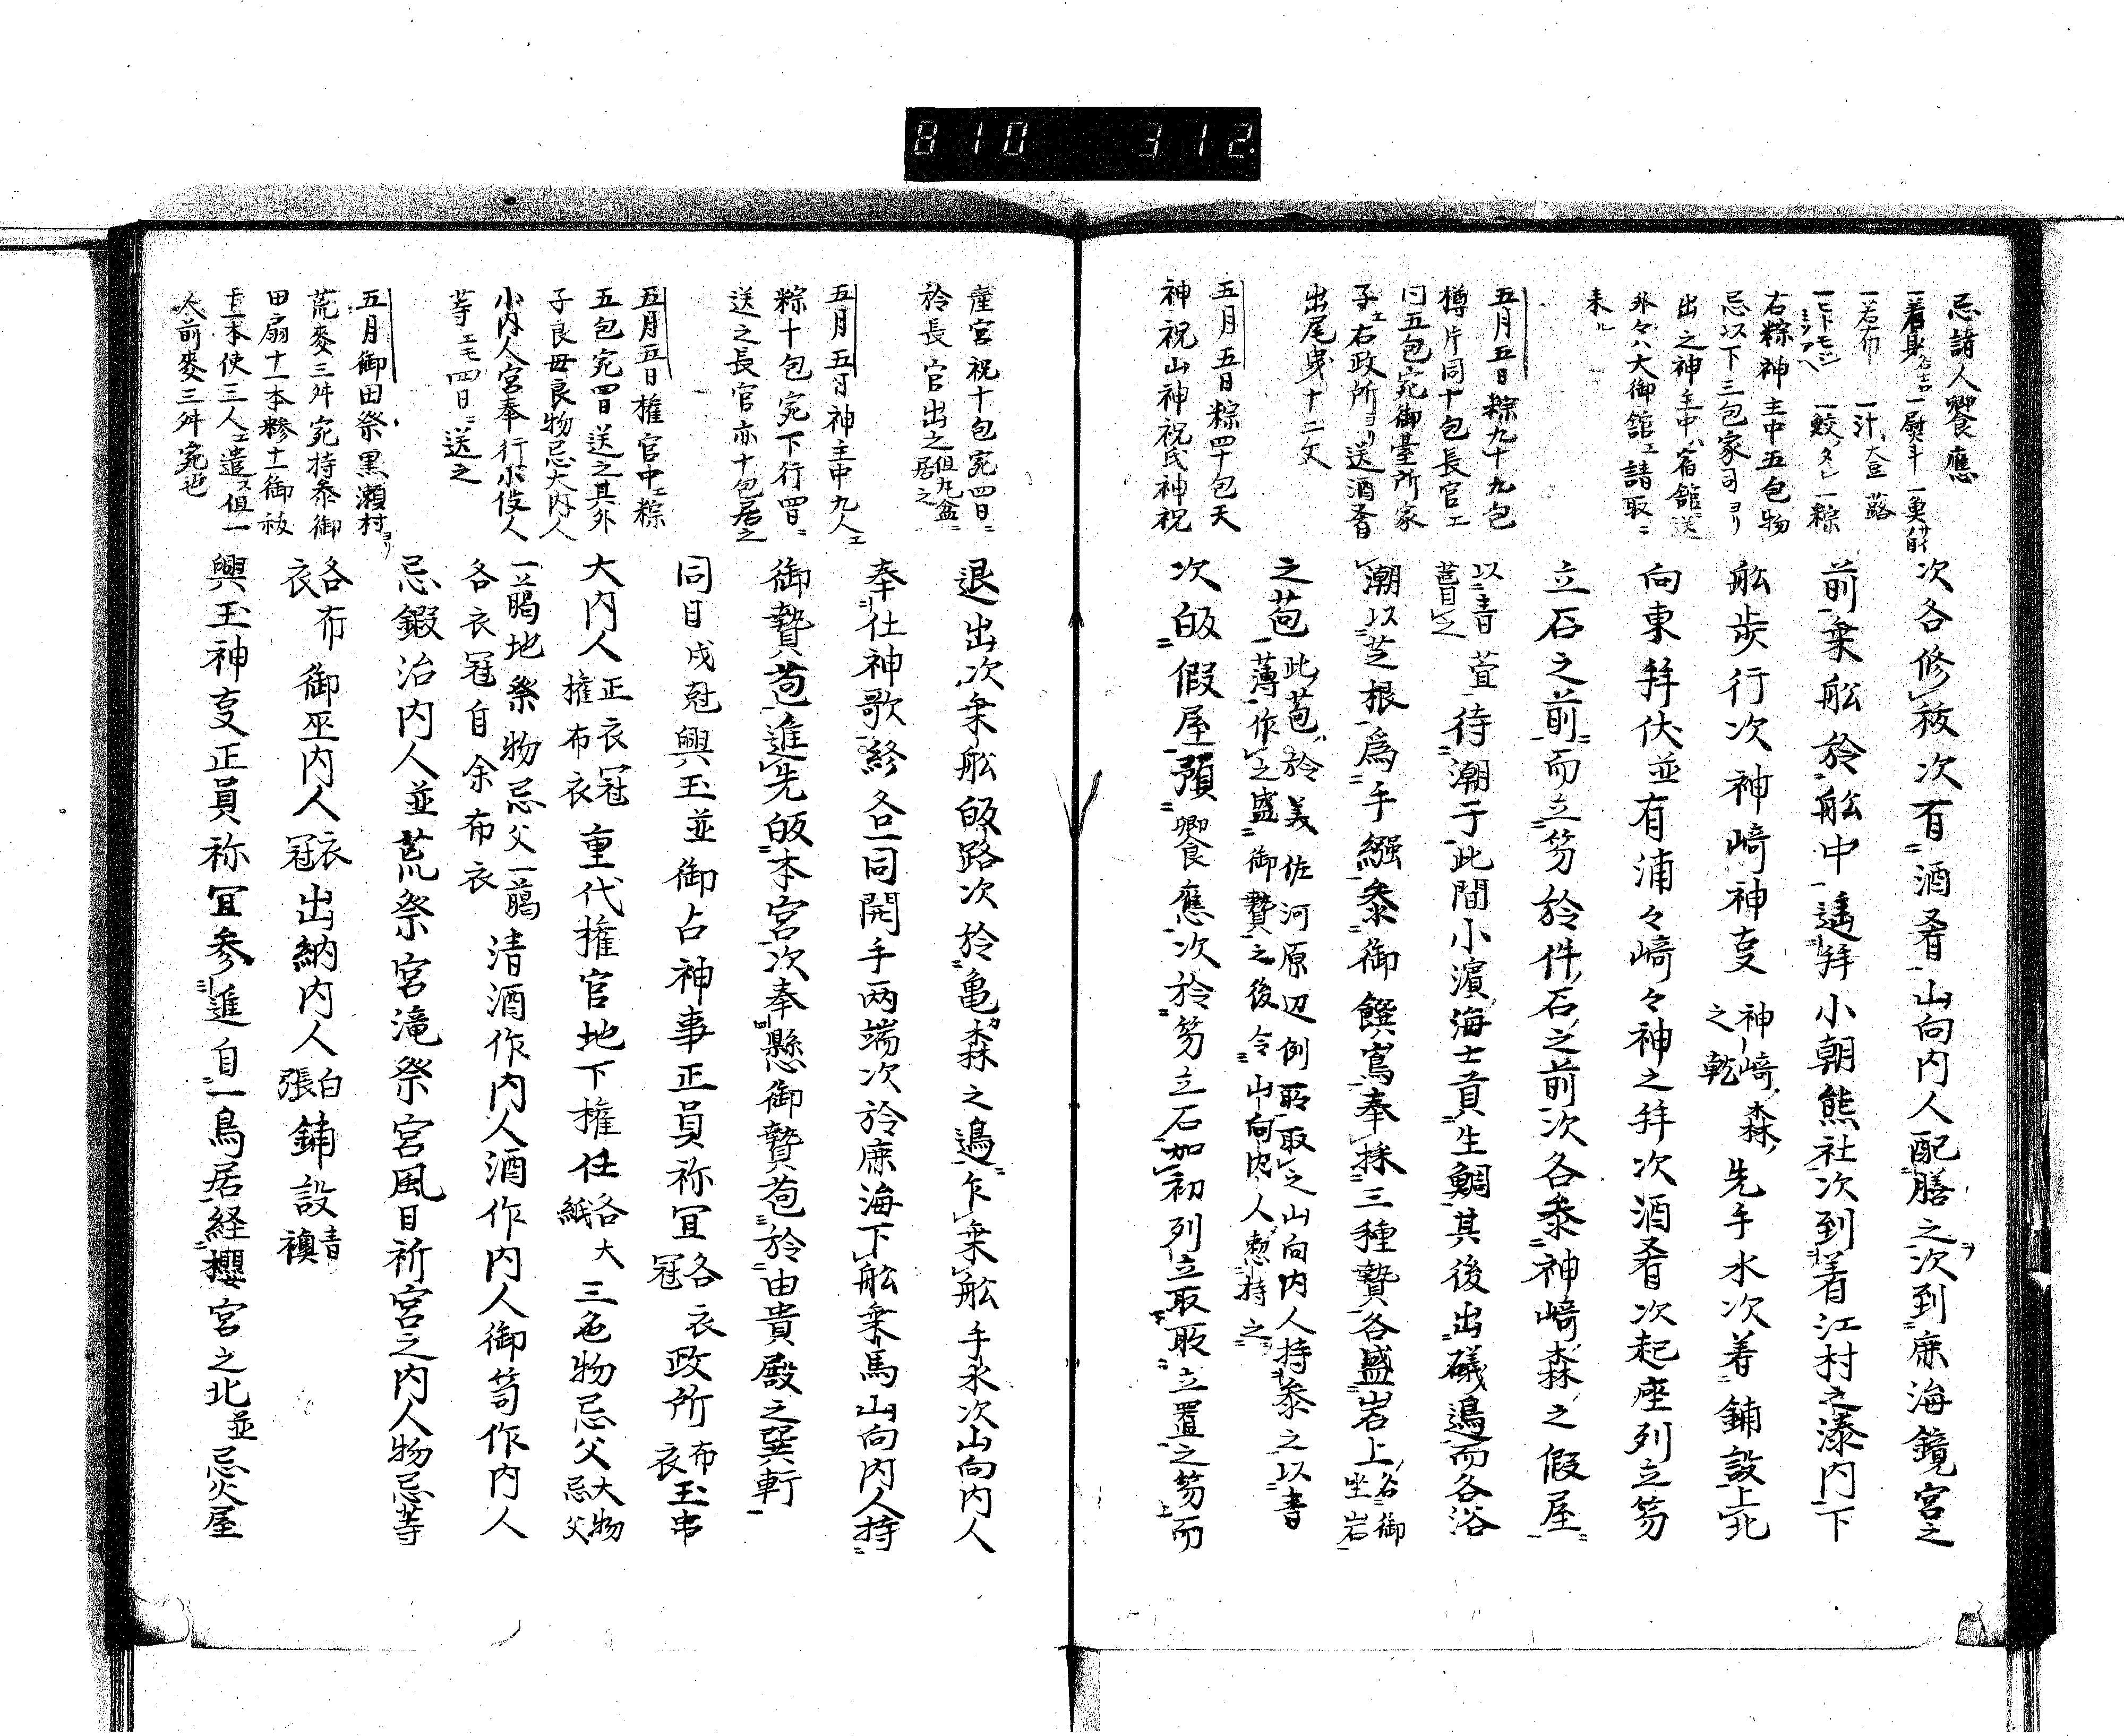 810 312.
忌請人饗應
一着身名吉一熨斗一奠鮓
一若布 一汁大豆蕗
一モトモジ 一鮫タレ一粽
右粽神主中五包物
忌以下三包家司ヨリ
出之神主中ハ宿館送
外々ハ大御館エ請取ニ
来ル
五月五日粽九十九包
樽片同十包長官エ
同五包宛御臺所家
子エ右政所ヨリ送酒肴
出尾曳十二文
五月五日粽四十包天
神祝山神祝氏神祝
次各修祓次有酒肴山向内人配膳之次到鹿海鏡宮之
前乗舩於舩中遥拜小朝熊社次到着江村之瀑内下
舩歩行次神﨑神亊神﨑森之乾先手水次着鋪設上北
向東拜伏並有浦々﨑々神之拜次酒肴次起座列立笏
立石之前而立笏於件石之前次各参神﨑森之假屋
以青萱葺之待潮于此間小濵海士貢生鯛其後出礒邉而各浴
潮以芝根爲手繦参御饌嶌奉採三種贄各盛岩上各御坐岩
之苞此苞於美佐河原辺例取之山向内人持参之以書
薄作之盛御贄之後令山向内人懃持之
次皈假屋預饗應次於笏立石加初列立取取立置之笏而
産宮祝十包宛四日ニ
於長官出之俎九盆ニ居之
五月五日神主中九人エ
粽十包宛下行四日ニ
送之長官亦十包居之
五月五日権官中エ粽
五包宛四日送之其外
子良母良物忌大内人
小内人宮奉行小役人
等エモ四日ニ送之
五月御田祭黒瀬村ヨリ
荒麥三舛宛持参御
田扇十一本糁十一御祓
十二本使三人エ遣ス俎一
人前麥三舛宛也
退出次乗舩皈路次於亀森之邉乍乗舩手水次山向内人
奉仕神歌終各一同開手両端次於鹿海下舩乗馬山向内人持
御贄苞進先皈本宮次奉懸御贄苞於由貴殿之巽軒
同日戌尅興玉並御占神事正員祢冝各衣冠政所布衣玉串
大内人正衣冠権布衣重代権官地下権任各大紙三色物忌父大物忌父
一﨟地祭物忌父一﨟各衣冠自余布衣清酒作内人酒作内人御笥作内人
忌鍜冶内人並荒祭宮滝祭宮風日祈宮之内人物忌等
各布衣御巫内人衣冠出納内人白張鋪設青襖
興玉神亊正員祢冝参進自一鳥居経櫻宮之北並忌火屋